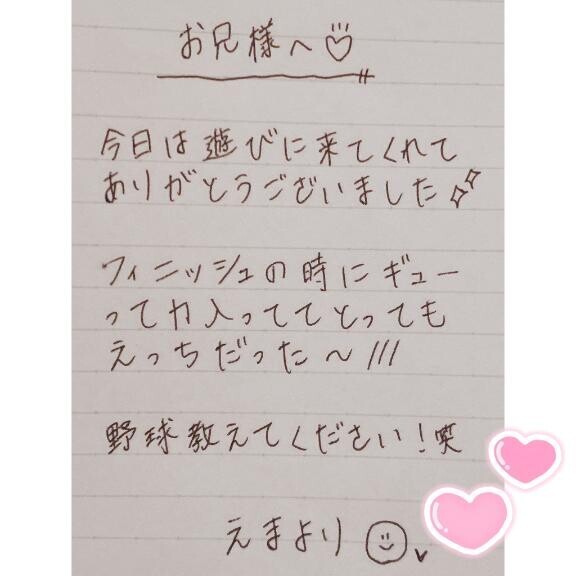 お兄様へ♡
今日は遊びに来てくれて
ありがとうございました✨
フィニッシュの時にギュー
って力入っててとっても
えっちだった〜///
野球教えてください！笑
えまより☺♥